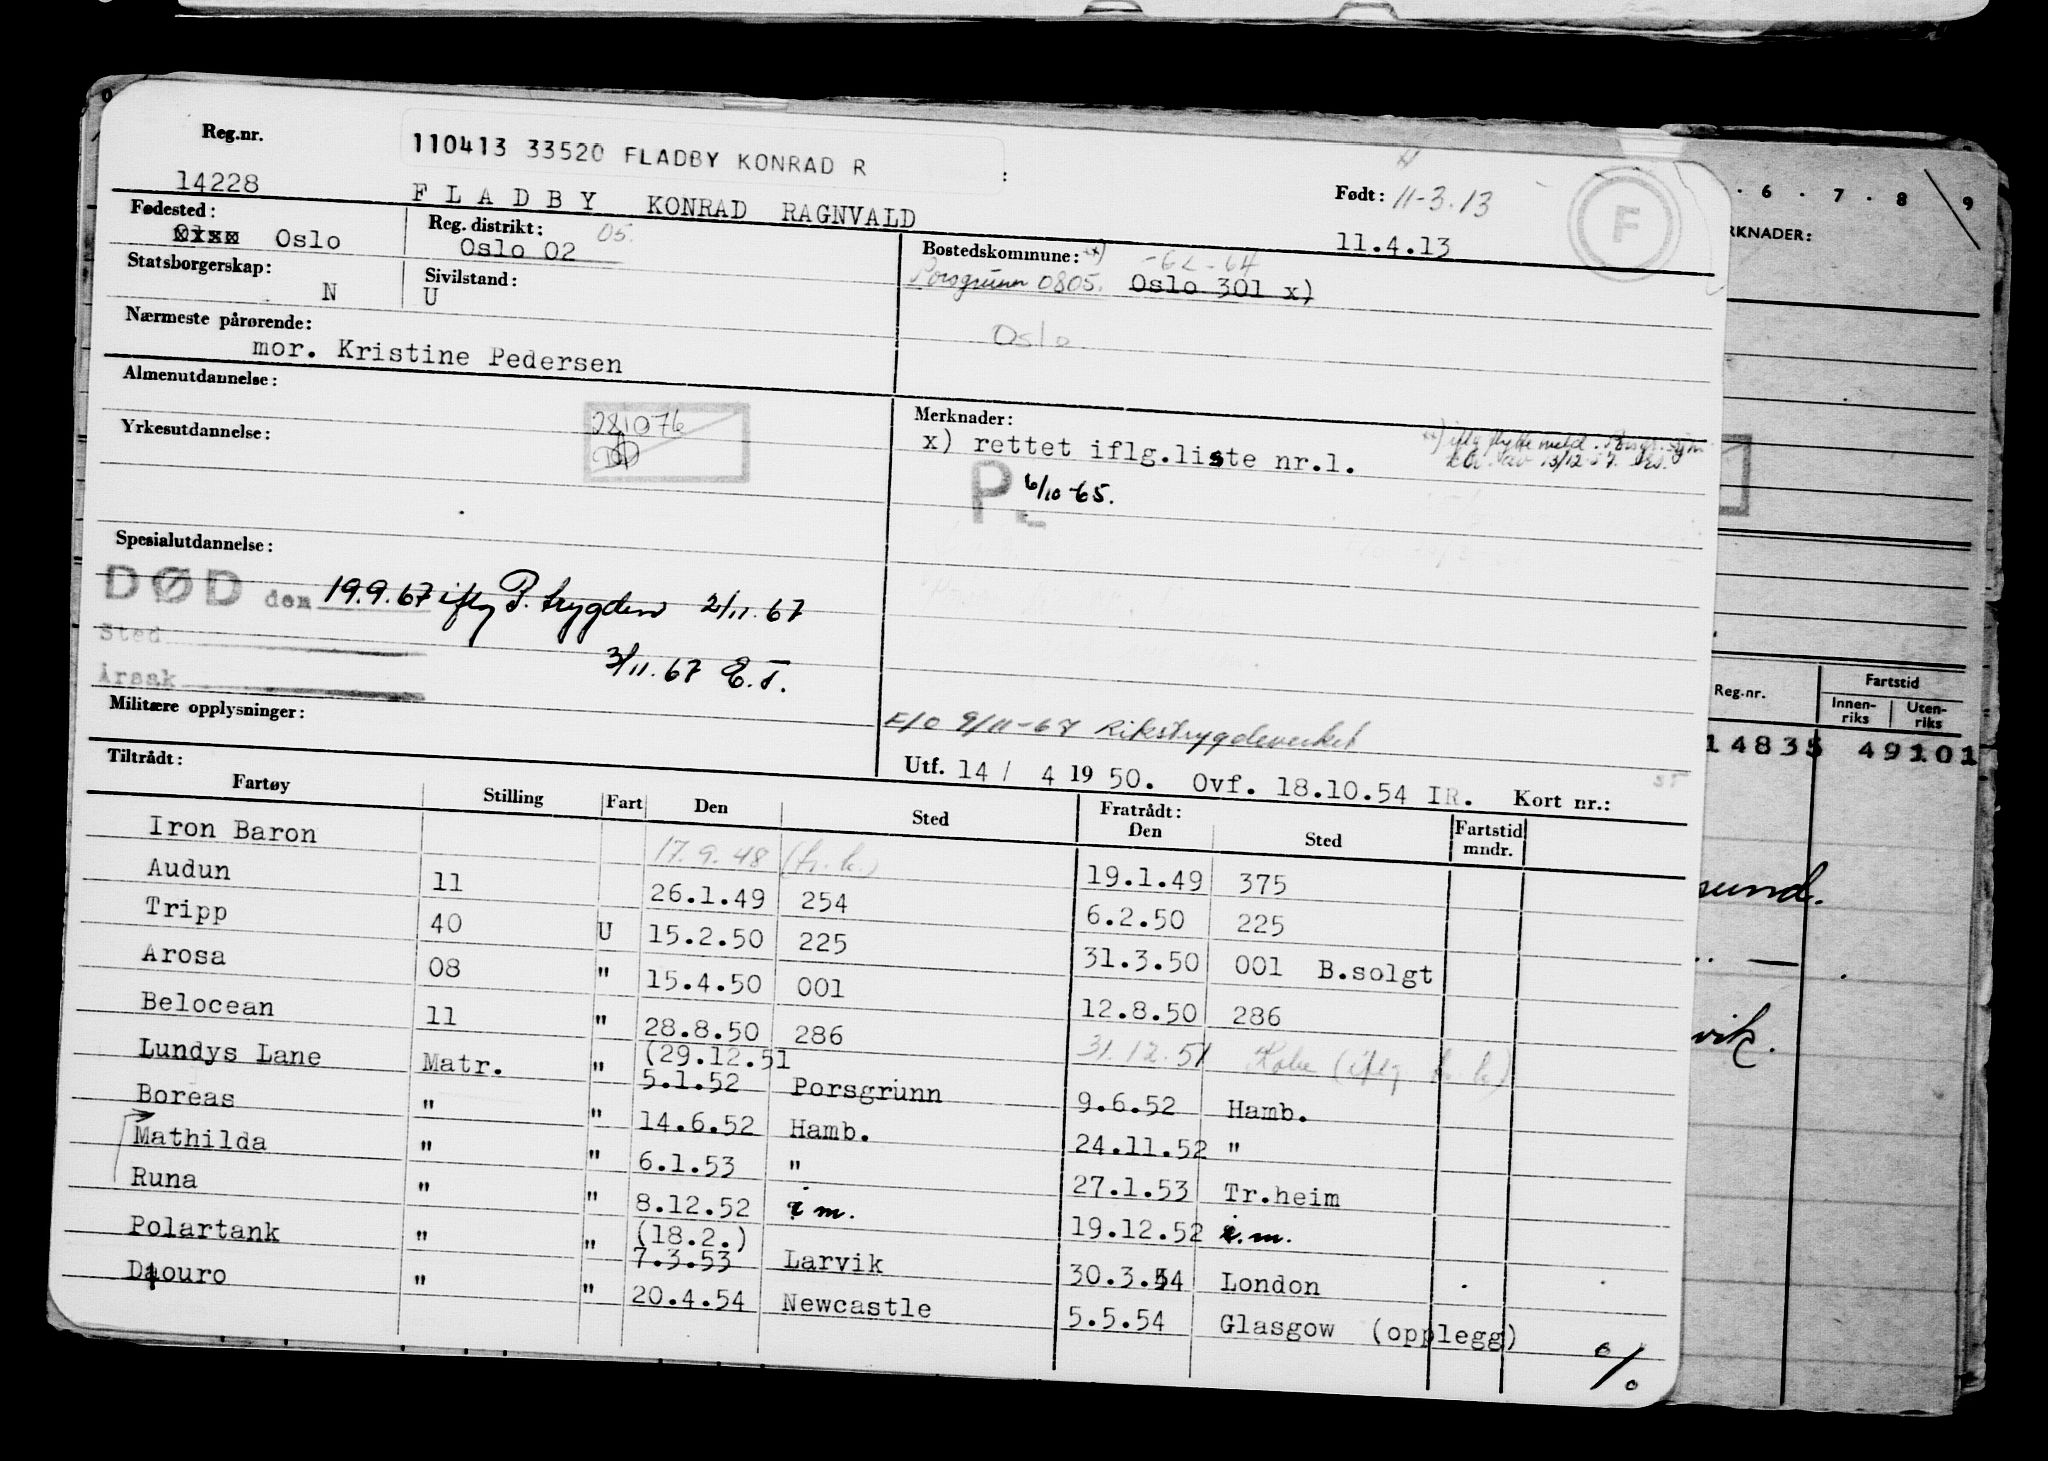 Reg.nr.
110413 33520 FLADBY KONRAD R
:
14228
F L A D B Y   KONRAD  RAGNVALD
Født: 11-3.13
11.4.13
F
Fødested:
Oslo
Reg. distrikt: 05.
Oslo 02
Bostedskommune: x) -62-64
Porsgrunn 0805. Oslo 301 x)
Oslo
Statsborgerskap:
N
Sivilstand:
U
Nærmeste pårørende:
mor. Kristine Pedersen
Almenutdannelse:
281076
Yrkesutdannelse:
Merknader:
x) rettet iflg.liste nr.1.
P 6/10-65.
13/12-57.
Spesialutdannelse:
DØD den 19.9.67 iflg P. trygden 2/11.67
Sted
3/11.67 E.T.
Årsak
Militære opplysninger:
E/O 9/11-67 Rikstrygdeverket
Utf. 14 / 4 19 50. Ovf. 18.10.54 IR. Kort nr.:
Tiltrådt:
Fartøy Stilling Fart Den Sted Fratrådt: Den Sted Fartstid mndr.
Iron Baron 17.9.48 (h.k.) 19.1.49 375
Audun 11 26.1.49 254 6.2.50 225
Tripp 40 U 15.2.50 225 31.3.50 001 B.solgt
Arosa 08 " 15.4.50 001 12.8.50 286
Belocean 11 " 28.8.50 286 31.12.51 Kobe (iflg h.k)
Lundys Lane Matr. " (29.12.51 5.1.52 Porsgrunn 9.6.52 Hamb.
Boreas " " 14.6.52 Hamb. 24.11.52 "
Mathilda " " 6.1.53 " 27.1.53 Tr.heim
Runa " " 8.12.52 i.m. 19.12.52 i.m.
Polartank " " (18.2.) 7.3.53 Larvik 30.3.54 London
Douro " " 20.4.54 Newcastle 5.5.54 Glasgow (opplegg)
%
. 6 . 7 . 8 9
RKNADER:
Reg.nr.
Fartstid
Innen-riks
Uten-riks
14835 49101
sund.
vik.